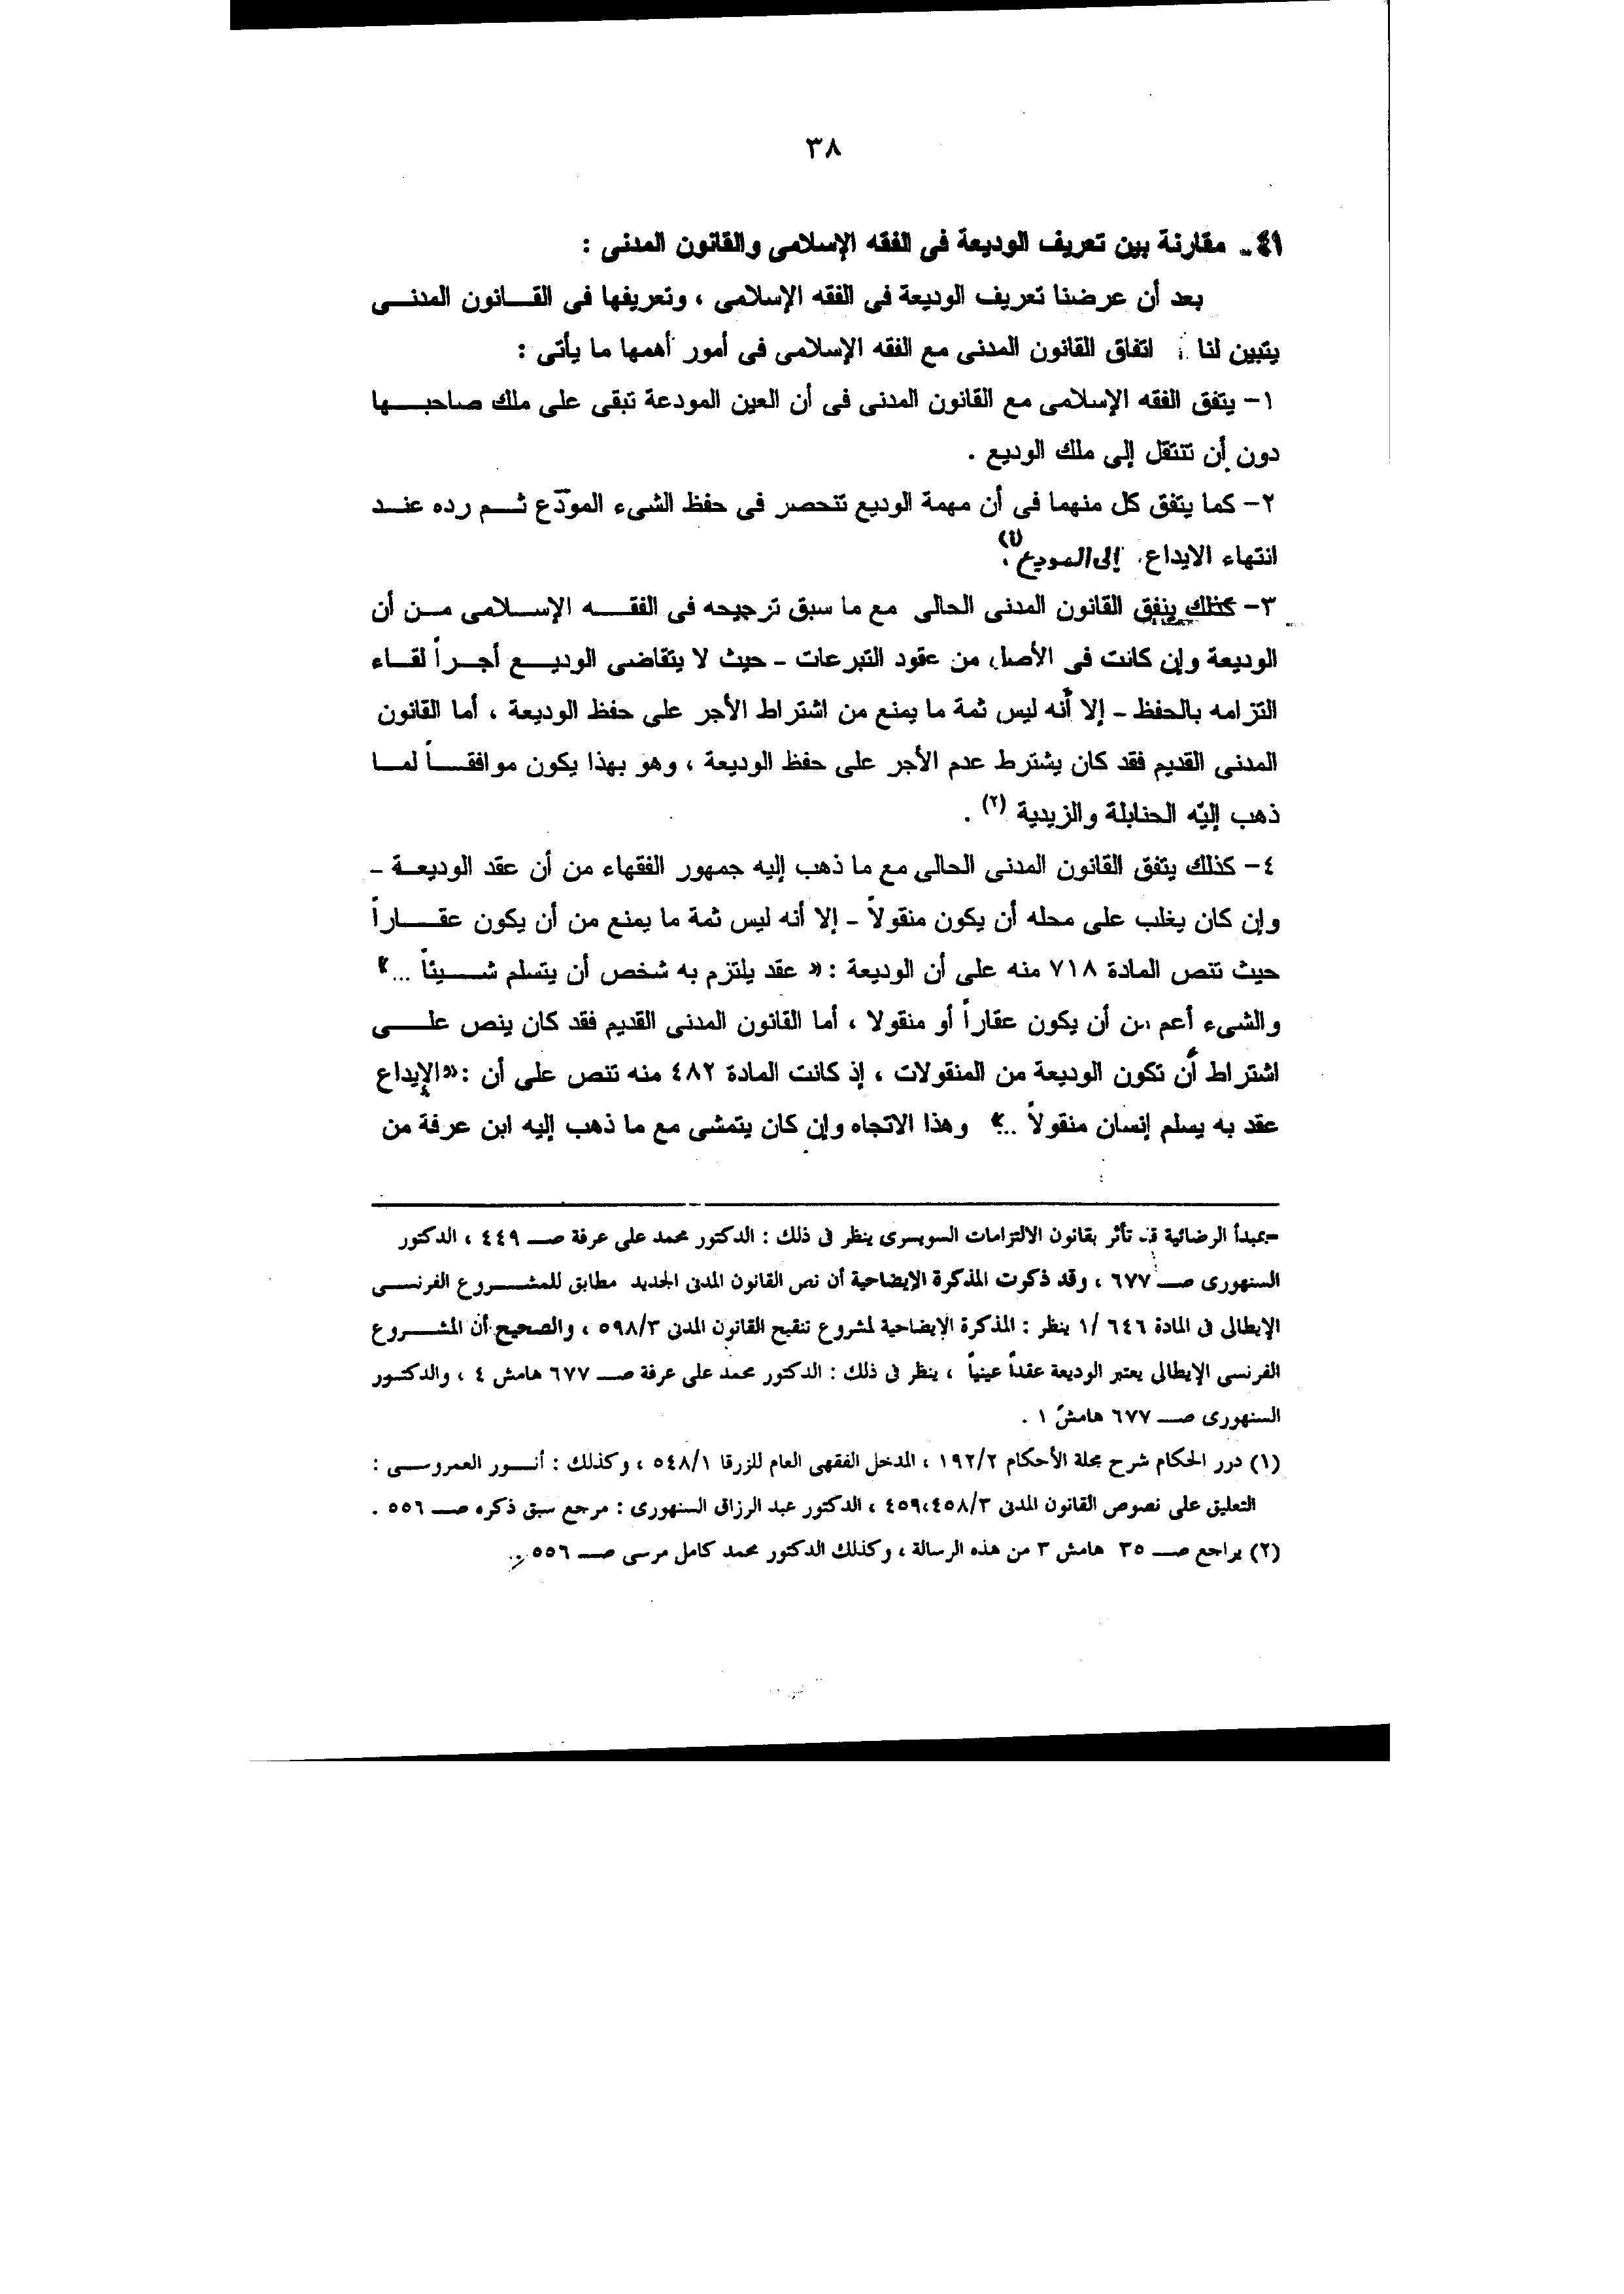 ٣٨
٤١ـ مقارنة بين تعريف الوديعة فى الفقه الإسلامى والقانون المدنى :
بعد أن عرضنا تعريف الوديعة فى الفقه الإسلامى ، وتعريفها فى القـــانون المدنـــى
يتبين لنا اتفاق القانون المدنى مع الفقه الإسلامى فى أمور أهمها ما يأتى :
١- يتفق الفقه الإسلامى مع القانون المدنى فى أن العين المودعة تبقى على ملك صاحبـــها
دون أن تنتقل إلى ملك الوديع .
٢- كما يتفق كل منهما فى أن مهمة الوديع تنحصر فى حفظ الشىء المودَع ثـــم رده عنـــد
انتهاء الايداع إلى المودِع (١).
٣- كذلك يتفق القانون المدنى الحالى مع ما سبق ترجيحه فى الفقـــه الإســـلامى مـــن أن
الوديعة وإن كانت فى الأصل من عقود التبرعات - حيث لا يتقاضى الوديـــع أجـــراً لقـــاء
التزامه بالحفظ - إلا أنه ليس ثمة ما يمنع من اشتراط الأجر على حفظ الوديعة ، أما القانون
المدنى القديم فقد كان يشترط عدم الأجر على حفظ الوديعة ، وهو بهذا يكون موافقـــاً لمـــا
ذهب إليه الحنابلة والزيدية (٢) .
٤- كذلك يتفق القانون المدنى الحالى مع ما ذهب إليه جمهور الفقهاء من أن عقد الوديعـــة -
وإن كان يغلب على محله أن يكون منقولاً - إلا أنه ليس ثمة ما يمنع من أن يكون عقـــاراً
حيث تنص المادة ٧١٨ منه على أن الوديعة : « عقد يلتزم به شخص أن يتسلم شـــيئاً ...»
والشىء أعم من أن يكون عقاراً أو منقولا ، أما القانون المدنى القديم فقد كان ينص علـــى
اشتراط أن تكون الوديعة من المنقولات ، إذ كانت المادة ٤٨٢ منه تنص على أن : «الإيداع
عقد به يسلم إنسان منقولاً ...» وهذا الاتجاه وإن كان يتمشى مع ما ذهب إليه ابن عرفة من
=بمبدأ الرضائية قد تأثر بقانون الالتزامات السويسرى ينظر فى ذلك : الدكتور محمد على عرفة صـــ ٤٤٩ ، الدكتور
السنهورى صـــ ٦٧٧ ، وقد ذكرت المذكرة الإيضاحية أن نص القانون المدنى الجديد مطابق للمشـــروع الفرنســـى
الإيطالى فى المادة ٦٤٦ /١ ينظر : المذكرة الإيضاحية لمشروع تنقيح القانون المدنى ٥٩٨/٣ ، والصحيح أن المشـــروع
الفرنسى الإيطالى يعتبر الوديعة عقداً عينياً ، ينظر فى ذلك : الدكتور محمد على عرفة صـــ ٦٧٧ هامش ٤ ، والدكتـــور
السنهورى صـــ ٦٧٧ هامش ١ .
(١) درر الحكام شرح مجلة الأحكام ١٩٢/٢ ، المدخل الفقهى العام للزرقا ٥٤٨/١ ، وكذلك : أنـــور العمروســـى :
التعليق على نصوص القانون المدنى ٤٥٩،٤٥٨/٣ ، الدكتور عبد الرزاق السنهورى : مرجع سبق ذكره صـــ ٥٥٦ .
(٢) يراجع صـــ ٣٥ هامش ٣ من هذه الرسالة ، وكذلك الدكتور محمد كامل مرسى صـــ ٥٥٦ .